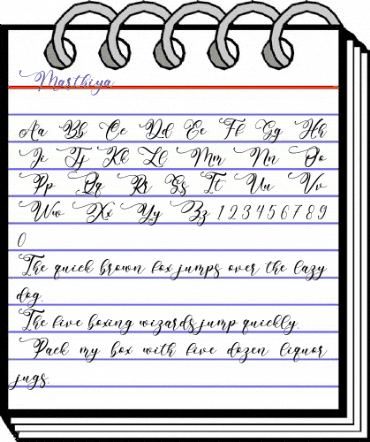 Marthiya
Aa Bb Cc Dd Ee Ff Gg Hh
Ii Jj Kk Ll Mm Nn Oo
Pp Qq Rr Ss Tt Uu Vv
Ww Xx Yy Zz 1 2 3 4 5 6 7 8 9
0
The quick brown fox jumps over the lazy
dog.
The five boxing wizards jump quickly.
Pack my box with five dozen liquor
jugs.